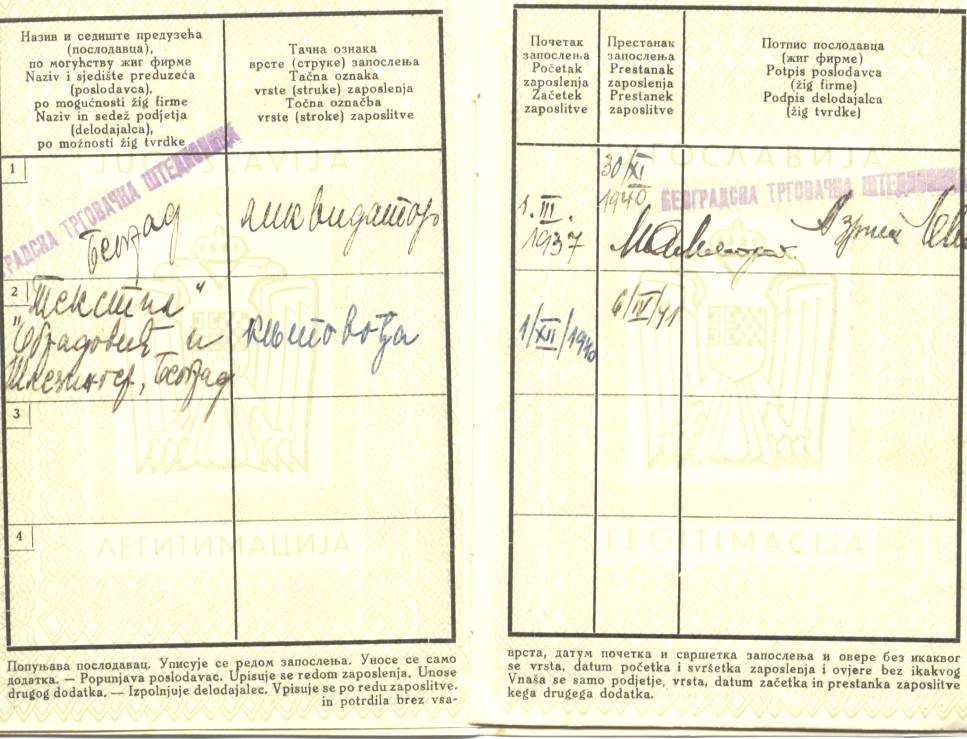 Назив и седиште предузећа
(послодавца),
по могућству жиг фирме
Naziv i sjedište preduzeća
(poslodavca),
po mogućnosti žig firme
Naziv in sedež podjetja
(delodajalca),
po možnosti žig tvrdke
Тачна ознака
врсте (струке) запослења
Tačna oznaka
vrste (struke) zaposlenja
Točna označba
vrste (stroke) zaposlitve
Почетак
запослења
Početak
zaposlenja
Začetek
zaposlitve
Престанак
запослења
Prestanak
zaposlenja
Prestanek
zaposlitve
Потпис послодавца
(жиг фирме)
Potpis poslodavca
(žig firme)
Podpis delodajalca
(žig tvrdke)
JUGOSLAVIJA
ЈУГОСЛАВИЈА
1
РАДСКА ТРГОВАЧКА ШТЕДИОНИЦА
Београд
ликвидатор
1. III.
1937
30/XI
1940
БЕОГРАДСКА ТРГОВАЧКА ШТЕДИОНИЦА
2
"Текстил"
Обрадовић и
Шлезингер, Београд
књиговођа
1/XII/1940
6/IV/41
3
4
ЛЕГИТИМАЦИЈА
LEGITIMACIJA
Попуњава послодавац. Уписује се редом запослења. Уносе се само
додатка. — Popunjava poslodavac. Upisuje se redom zaposlenja. Unose
drugog dodatka. — Izpolnjuje delodajalec. Vpisuje se po redu zaposlitve.
in potrdila brez vsa-
врста, датум почетка и свршетка запослења и овере без икаквог
se vrsta, datum početka i svršetka zaposlenja i ovjere bez ikakvog
Vnaša se samo podjetje, vrsta, datum začetka in prestanka zaposlitve
kega drugega dodatka.